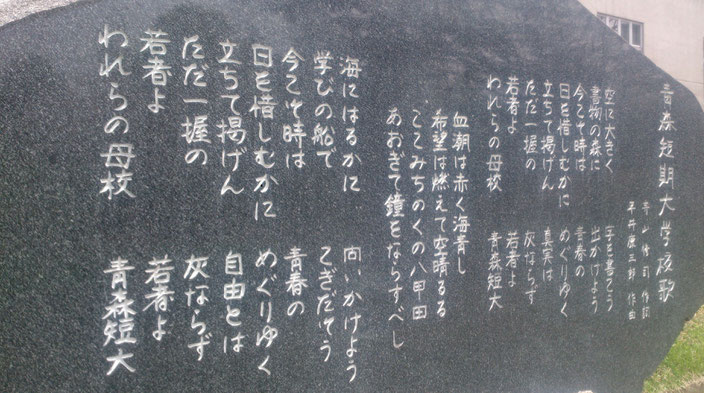 青森短期大学校歌
寺山修司 作詞
平井康三郎 作曲
空に大きく 字を書こう
書物の森に 出かけよう
今こそ時は 青春の
日を惜しむかに めぐりゆく
立ちて揚げん 真実は
ただ一握の 灰ならず
若者よ 若者よ
われらの母校 青森短大
血潮は赤く海青し
希望は燃えて空晴るる
ここみちのくの八甲田
あおぎて鐘をならすべし
海にはるかに 向いかけよう
学びの船で こぎだそう
今こそ時は 青春の
日を惜しむかに めぐりゆく
立ちて揚げん 自由とは
ただ一握の 灰ならず
若者よ 若者よ
われらの母校 青森短大